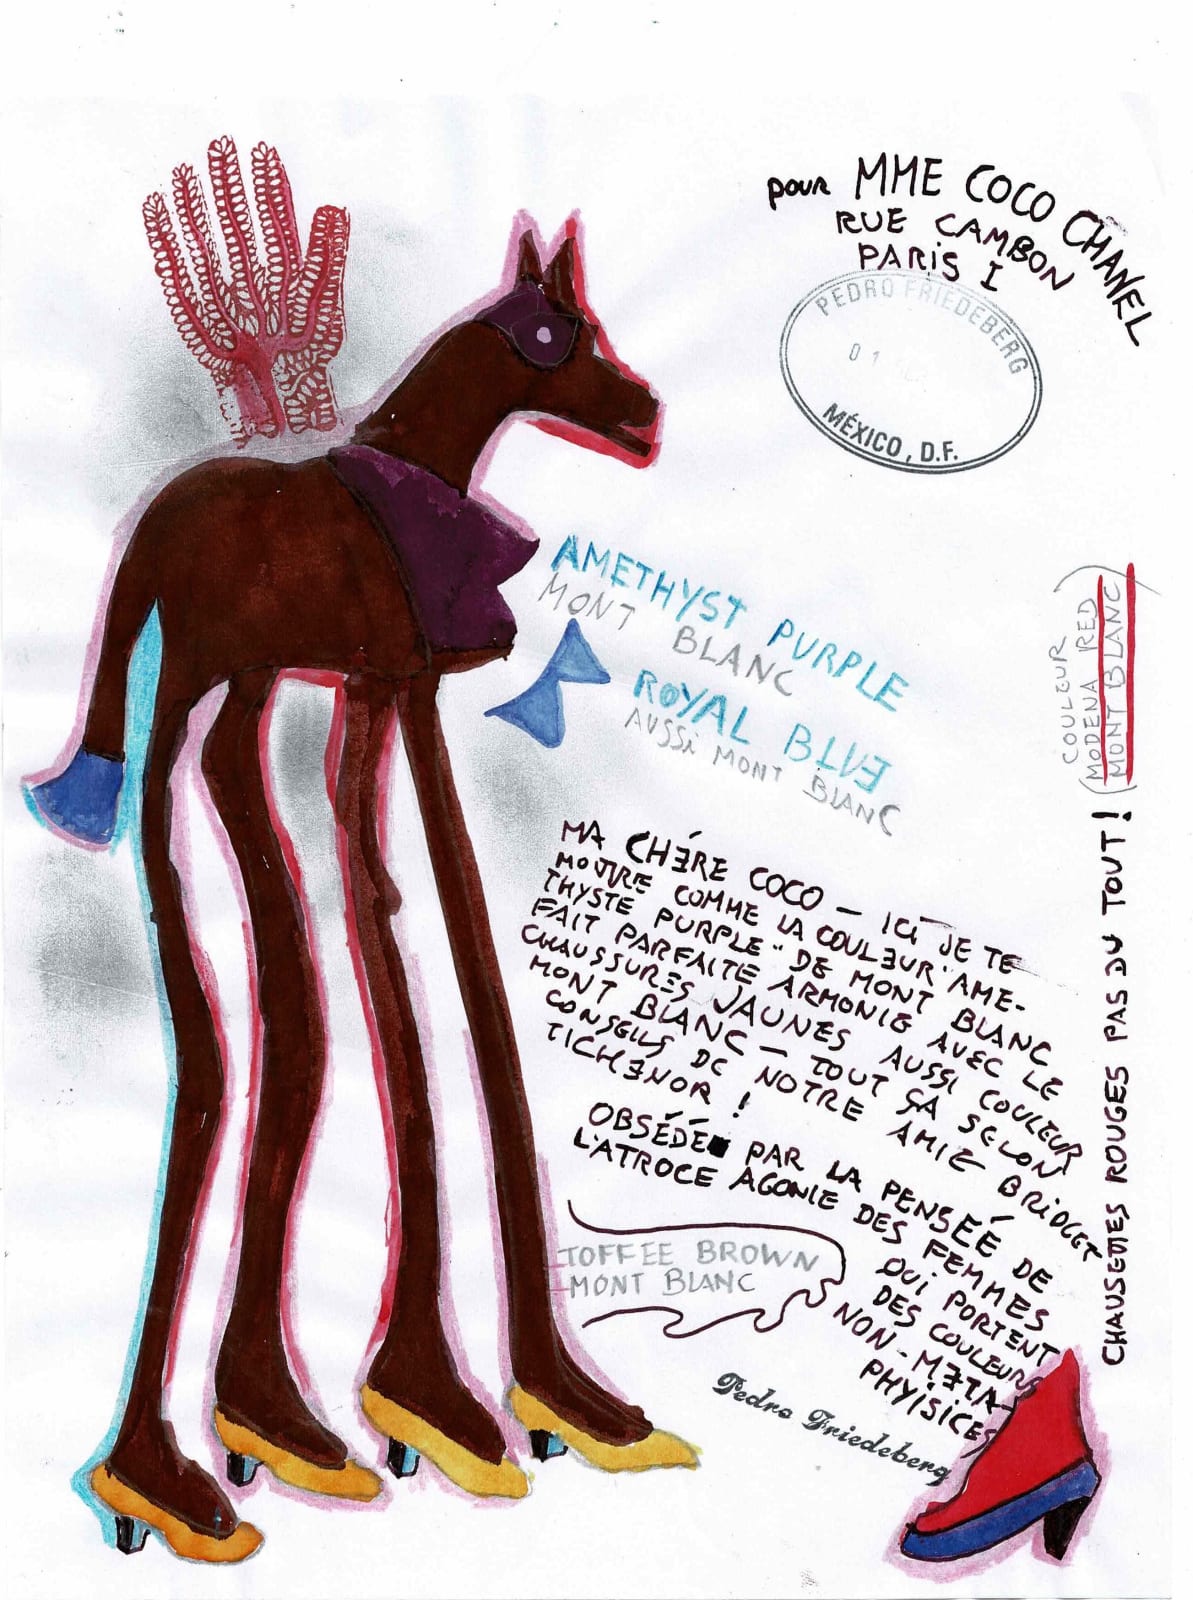 pour MME COCO CHANEL
RUE CAMBON
PARIS I
PEDRO FRIEDEBERG
01
MÉXICO, D.F.
AMETHYST PURPLE
MONT BLANC
ROYAL BLUE
AUSSI MONT BLANC
COULEUR
(MODENA RED
MONT BLANC)
CHAUSETTES ROUGES PAS DU TOUT!
MA CHÉRE COCO – ICI JE TE
MOTTRE COMME LA COULEUR "AME-
THYSTE PURPLE" DE MONT BLANC
FAIT PARFAITE ARMONIE AVEC LE
CHAUSSURES JAUNES AUSSI COULEUR
MONT BLANC – TOUT ÇA SELON
CONSEILS DE NOTRE AMIE BRIDGET
TICHENOR !
OBSÉDÉ PAR LA PENSÉÉ DE
L'ATROCE AGONIE DES FEMMES
QUI PORTENT
DES COULEURS
NON-META-
PHYISICES
TOFFEE BROWN
MONT BLANC
Pedro Friedeberg